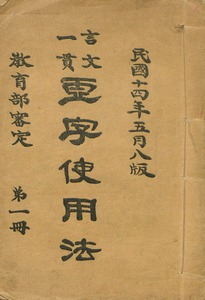 民國十四年五月八版
言文
一貫
虛字使用法
教育部審定
第一冊